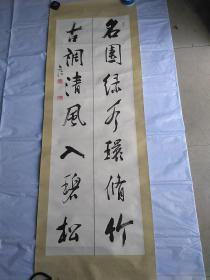 名園绿水環脩竹
古調清風入碧松